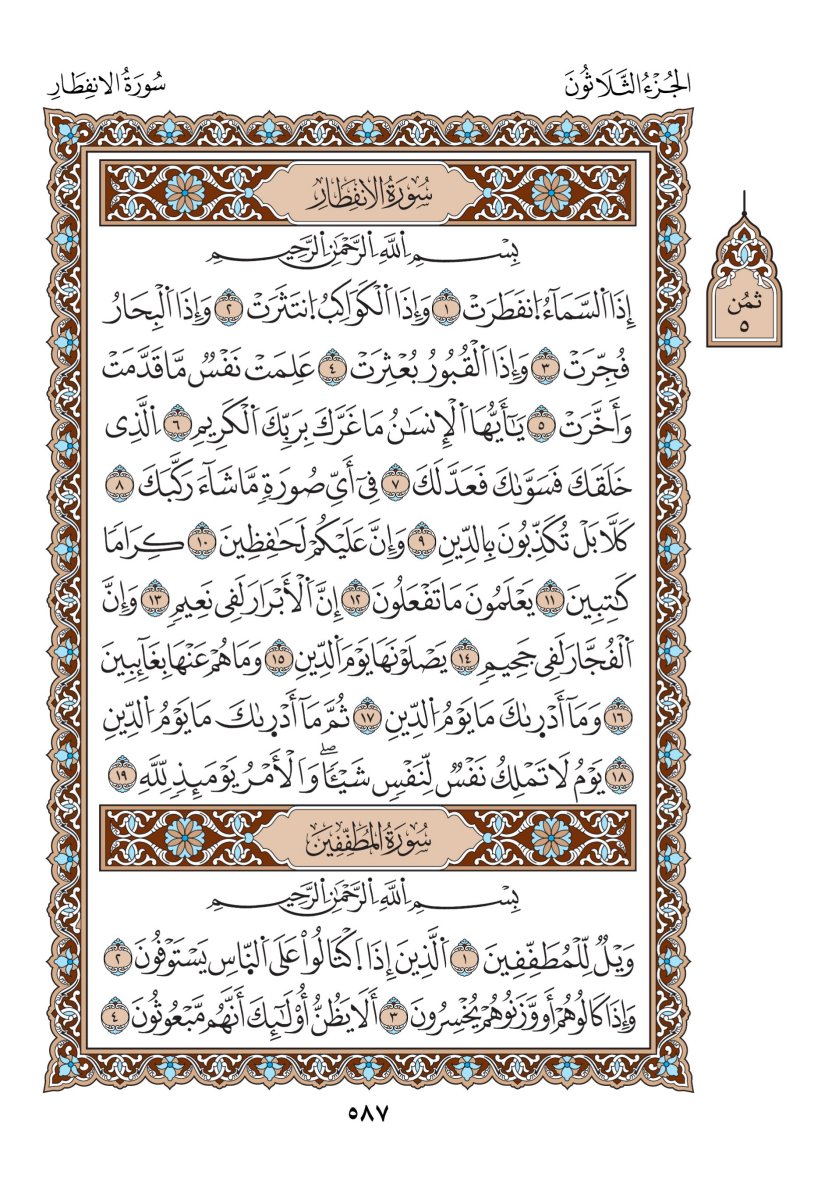 سُورَةُ الانفِطَارِ
الجُزْءُ الثَّلَاثُونَ
سُورَةُ الانفِطَارِ
بِسْمِ اِللَّهِ اِلرَّحْمَٰنِ اِلرَّحِيمِ
ثمُن ٥
إِذَا اَلسَّمَآءُ اُ۪نفَطَرَتْ ١ وَإِذَا اَلْكَوَاكِبُ اُ۪نتَثَرَتْ ٢ وَإِذَا اَلْبِحَارُ
فُجِّرَتْ ٣ وَإِذَا اَلْقُبُورُ بُعْثِرَتْ ٤ عَلِمَتْ نَفْسٌ مَّا قَدَّمَتْ
وَأَخَّرَتْ ٥ يَٰٓأَيُّهَا اَلْإِنسَٰنُ مَا غَرَّكَ بِرَبِّكَ اَلْكَرِيمِ ٦ اِلَّذِى
خَلَقَكَ فَسَوَّىٰكَ فَعَدَّلَكَ ٧ فِىٓ أَىِّ صُورَةٍ مَّا شَآءَ رَكَّبَكَ ٨
كَلَّا بَلْ تُكَذِّبُونَ بِالدِّينِ ٩ وَإِنَّ عَلَيْكُمْ لَحَٰفِظِينَ ١٠ كِرَامًا
كَٰتِبِينَ ١١ يَعْلَمُونَ مَا تَفْعَلُونَ ١٢ إِنَّ اَلْأَبْرَارَ لَفِى نَعِيمٍ ١٣ وَإِنَّ
اَلْفُجَّارَ لَفِى جَحِيمٍ ١٤ يَصْلَوْنَهَا يَوْمَ اَلدِّينِ ١٥ وَمَا هُمْ عَنْهَا بِغَآئِبِينَ
١٦ وَمَآ أَدْرىٰكَ مَا يَوْمُ اُلدِّينِ ١٧ ثُمَّ مَآ أَدْرىٰكَ مَا يَوْمُ اُلدِّينِ
١٨ يَوْمُ لَا تَمْلِكُ نَفْسٌ لِّنَفْسٍ شَيْـًٔاۖ وَالْأَمْرُ يَوْمَئِذٍ لِّلَّهِ ١٩
سُورَةُ المُطَفِّفِينَ
بِسْمِ اِللَّهِ اِلرَّحْمَٰنِ اِلرَّحِيمِ
وَيْلٌ لِّلْمُطَفِّفِينَ ١ اَلَّذِينَ إِذَا اَ۪كْتَالُوا۟ عَلَى اَلنَّاسِ يَسْتَوْفُونَ ٢
وَإِذَا كَالُوهُمْ أَو وَّزَنُوهُمْ يُخْسِرُونَ ٣ أَلَا يَظُنُّ أُو۟لَٰٓئِكَ أَنَّهُم مَّبْعُوثُونَ ٤
٥٨٧